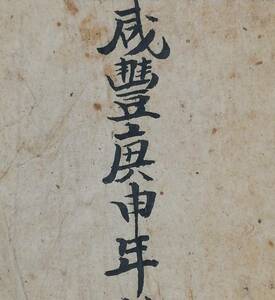 咸豐庚申年